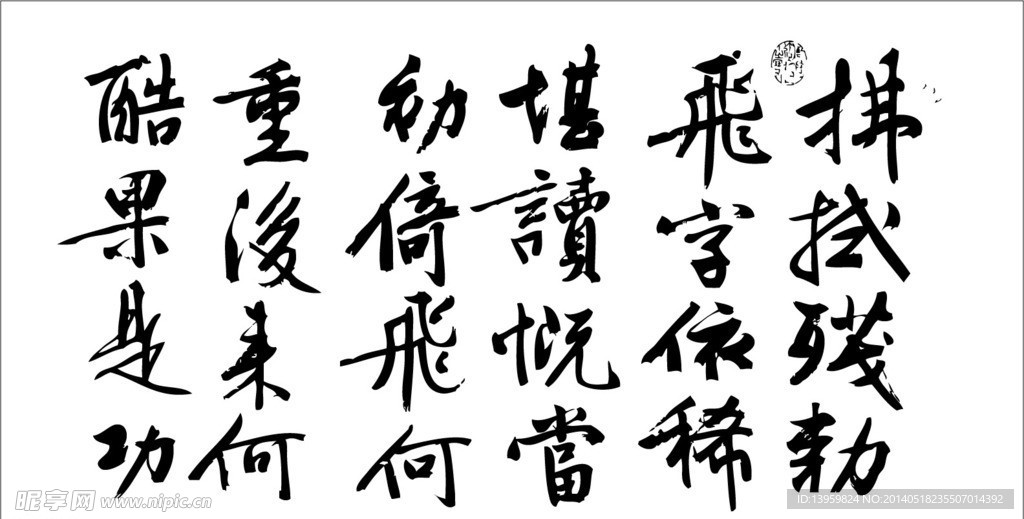 拂拭殘勅
飛字依稀
堪讀慨當
初倚飛何
重後来何
酷果是功
昵享网 www.nipic.cn
ID:13959824 NO:20140518235507014392